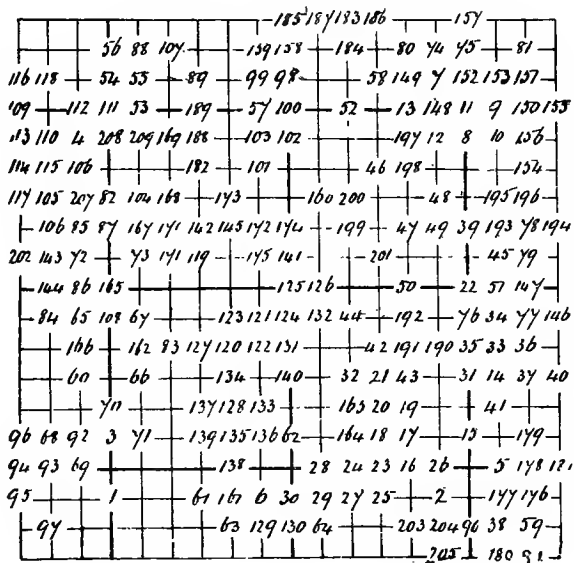 185 187 183 186 157
56 88 107 159 158 184 80 74 75 81
116 118 54 55 89 99 98 58 149 7 152 153 157
109 112 111 53 189 57 100 52 13 148 11 9 150 155
113 110 4 208 209 169 188 103 102 197 12 8 10 156
114 115 106 182 101 46 198 154
117 105 207 82 104 168 173 160 200 48 195 196
106 85 87 167 171 142 145 172 174 199 47 49 39 193 78 194
202 143 72 73 171 119 175 141 201 45 79
144 86 165 125 126 50 22 51 147
84 65 108 67 123 121 124 132 44 192 76 34 77 146
166 162 83 127 120 122 131 42 191 190 35 33 36
60 66 134 140 32 21 43 31 14 37 40
70 137 128 133 163 20 19 41
96 68 92 3 71 139 135 136 62 164 18 17 15 179
94 93 69 138 28 24 23 16 26 5 178 121
95 1 61 167 6 30 29 27 25 2 177 176
97 63 129 130 64 203 204 96 38 59
205 180